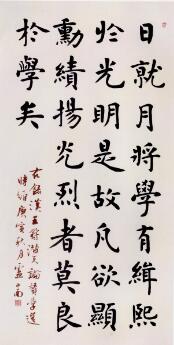 日就月將學有緝熙
於光明是故凡欲顯
勳績揚光烈者莫良
於學矣
錄漢王符潛夫論贊學選
時維庚寅秋月